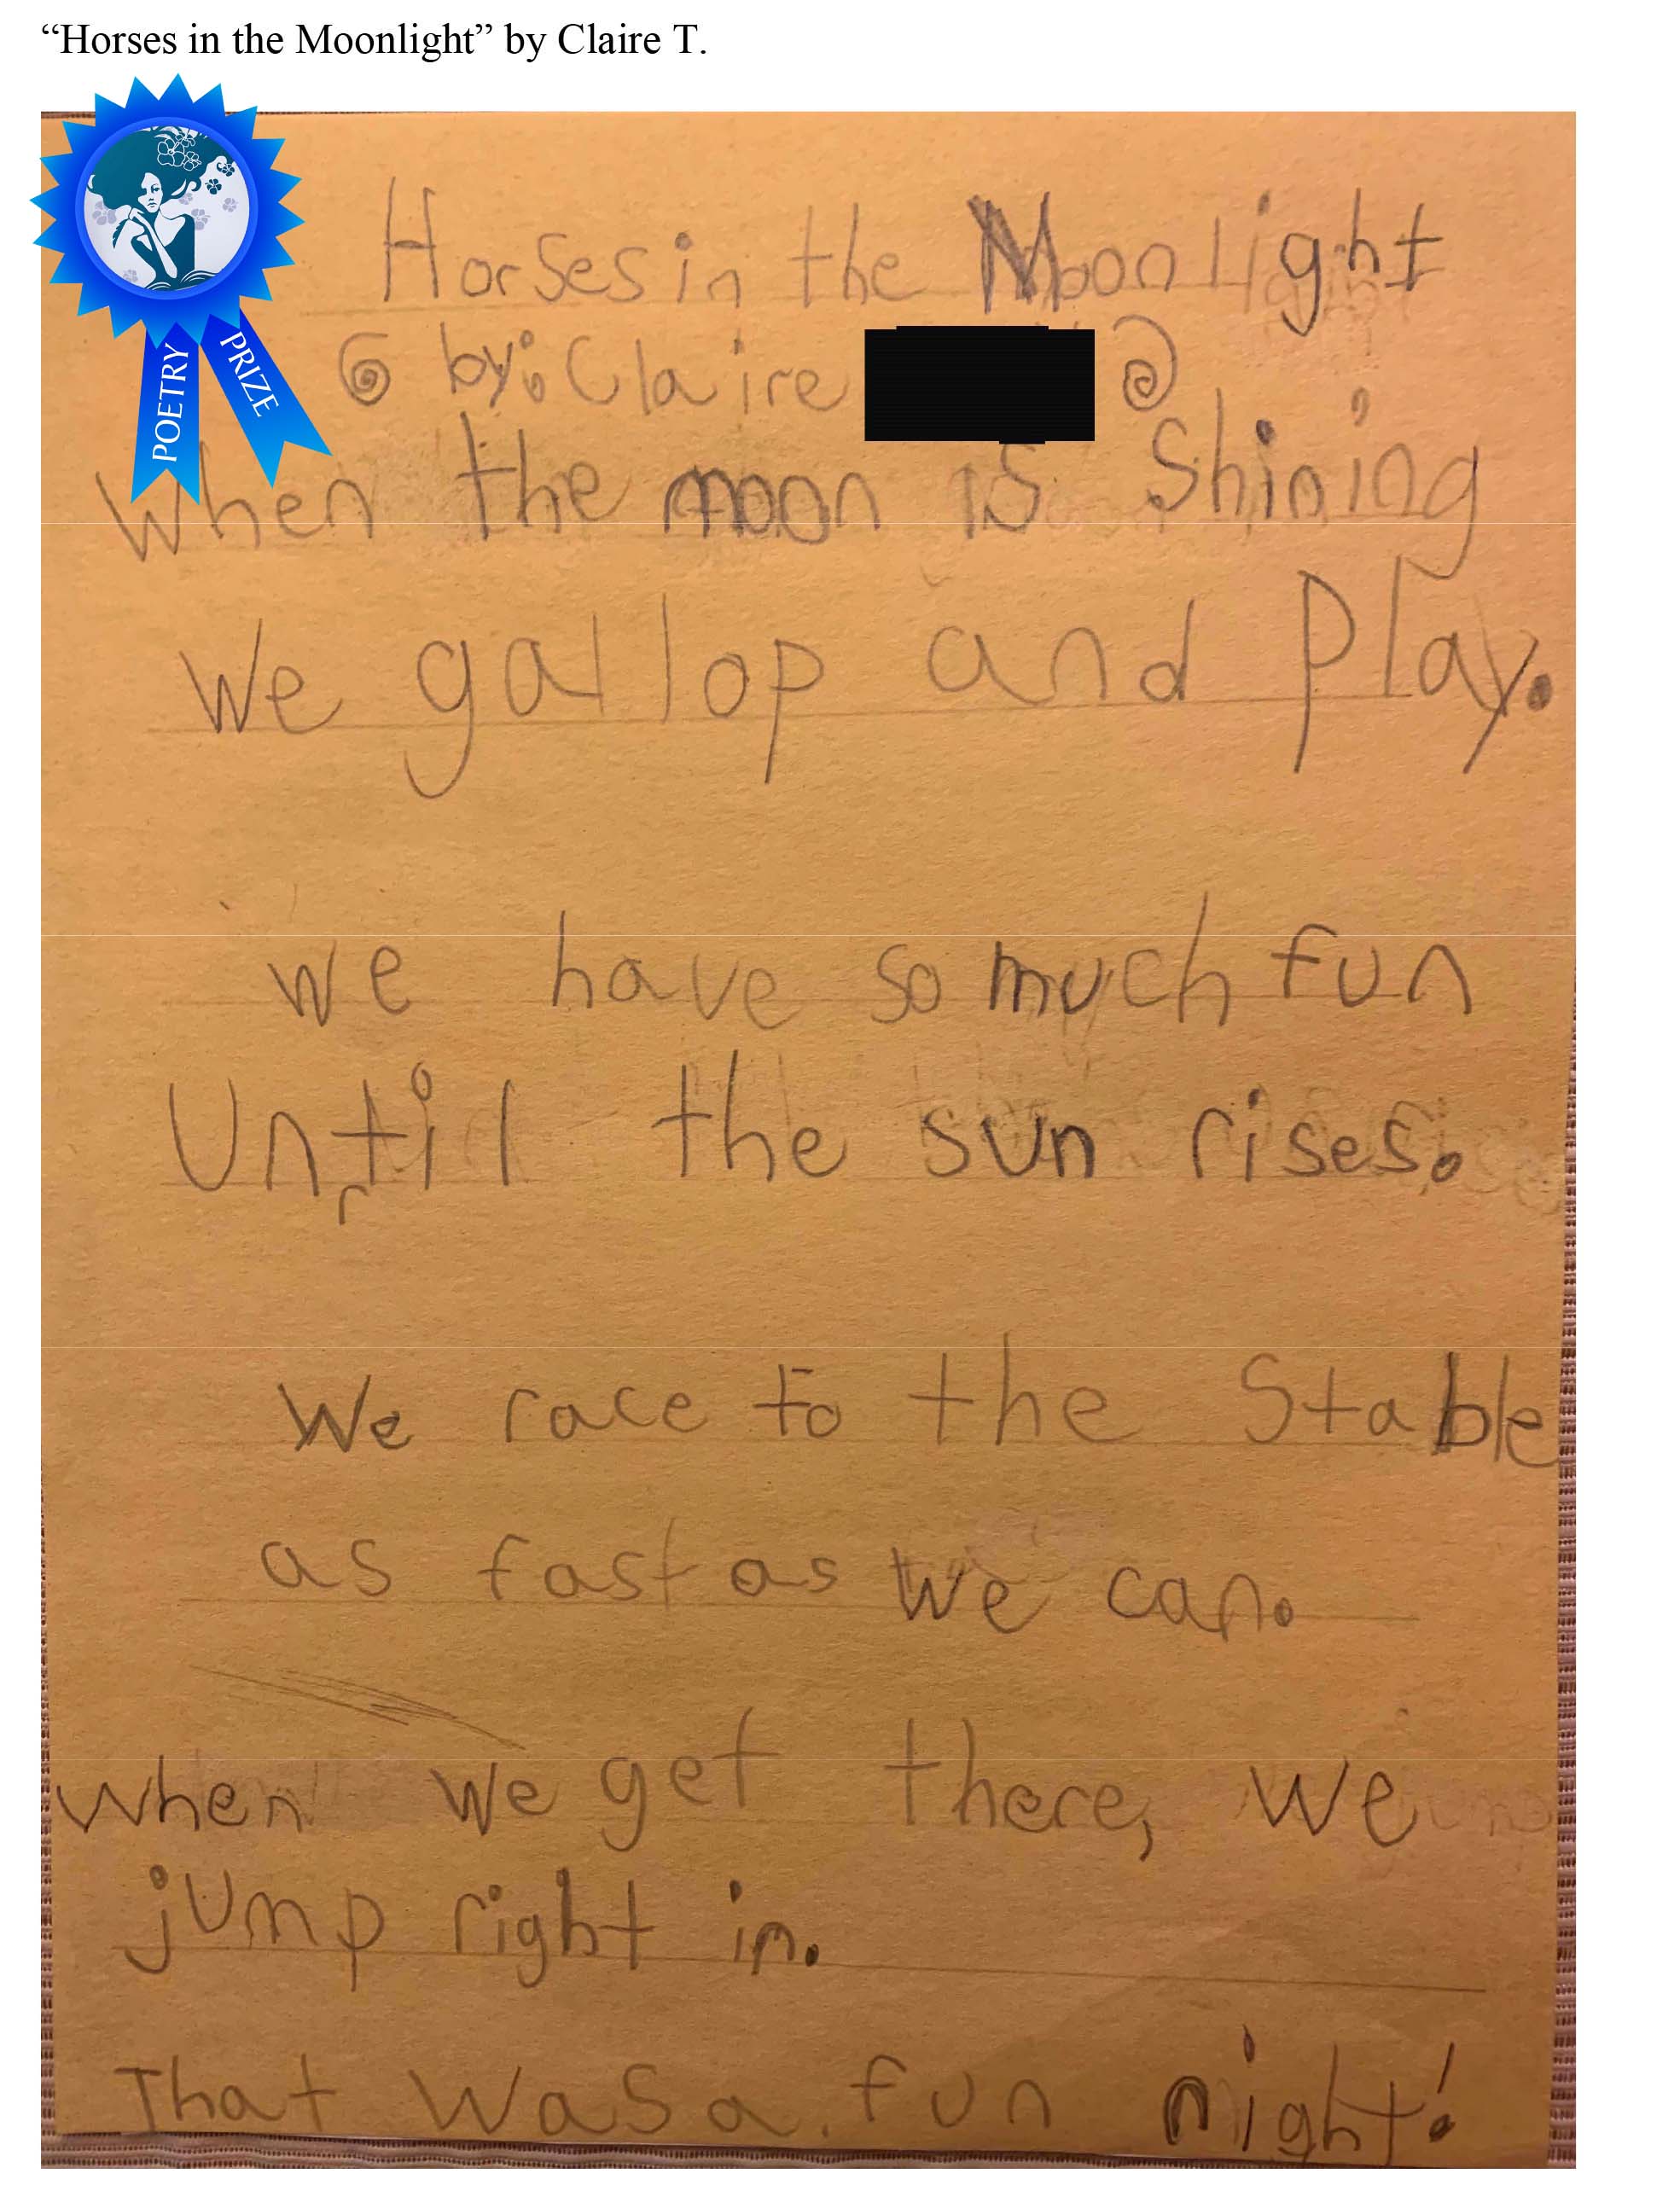 “Horses in the Moonlight” by Claire T.
POETRY
PRIZE
Horses in the Moonlight
by: Claire
When the moon is Shining
We gallop and Play.
We have so much fun
Until the sun rises.
We race to the Stable
as fast as we can.
When we get there, we
jump right in.
That was a fun night!